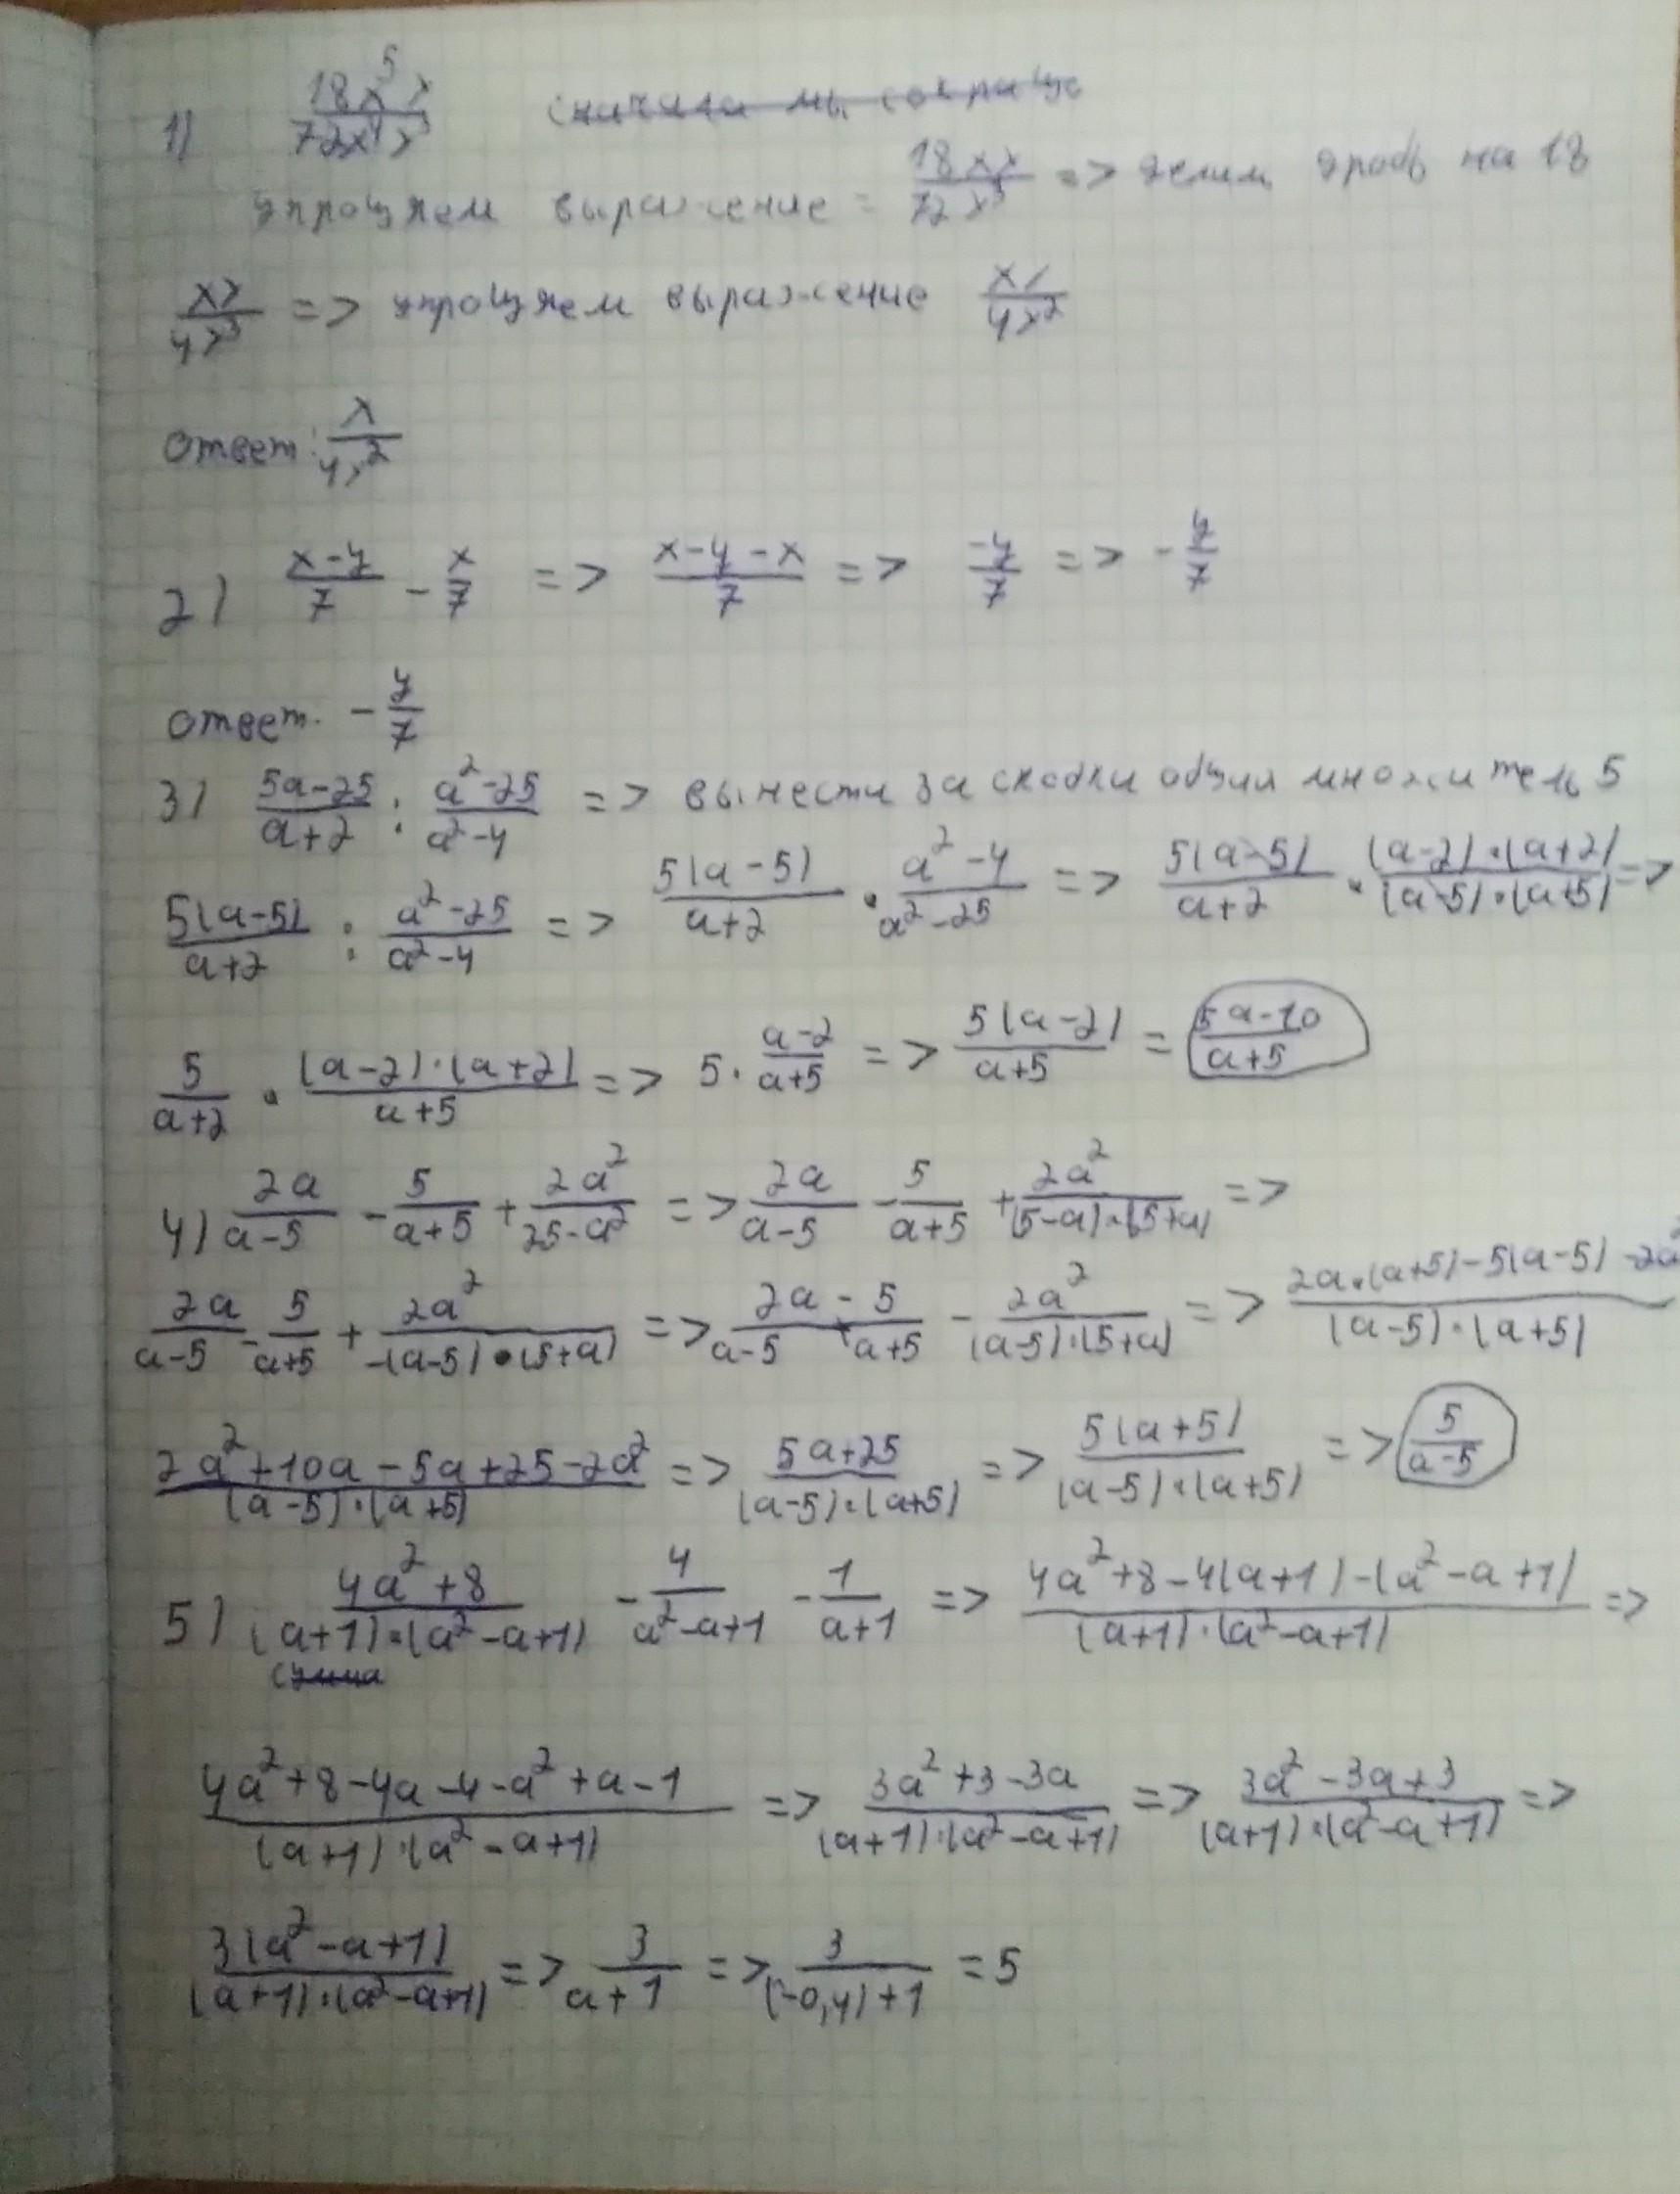 1) 18x⁵y/72x⁴y³ сначала мы сокраще
упрощяем выражение = 18xy/72y³ => делим дробь на 18
xy/4y³ => упрощяем выражение xy/4y²
ответ: x/4y²
2) (x-y)/7 - x/7 => (x-y-x)/7 => -y/7 => -y/7
ответ. -y/7
3) (5a-25)/(a+2) : (a²-25)/(a²-4) => вынести за скобки общий множитель 5
5(a-5)/(a+2) : (a²-25)/(a²-4) => 5(a-5)/(a+2) · (a²-4)/(a²-25) => 5(a-5)/(a+2) · (a-2)·(a+2)/(a-5)·(a+5) =>
5/(a+2) · (a-2)·(a+2)/(a+5) => 5 · (a-2)/(a+5) => 5(a-2)/(a+5) = (5a-10)/(a+5)
4) 2a/(a-5) - 5/(a+5) + 2a²/(25-a²) => 2a/(a-5) - 5/(a+5) + 2a²/(5-a)·(5+a) =>
2a/(a-5) - 5/(a+5) + 2a²/-(a-5)·(5+a) => 2a/(a-5) - 5/(a+5) - 2a²/(a-5)·(5+a) => (2a·(a+5)-5(a-5)-2a²)/(a-5)·(a+5)
(2a²+10a-5a+25-2a²)/(a-5)·(a+5) => (5a+25)/(a-5)·(a+5) => 5(a+5)/(a-5)·(a+5) => 5/(a-5)
5) (4a²+8)/(a+1)·(a²-a+1) - 4/(a²-a+1) - 1/(a+1) => (4a²+8-4(a+1)-(a²-a+1))/(a+1)·(a²-a+1) =>
сумма
(4a²+8-4a-4-a²+a-1)/(a+1)·(a²-a+1) => (3a²+3-3a)/(a+1)·(a²-a+1) => (3a²-3a+3)/(a+1)·(a²-a+1) =>
3(a²-a+1)/(a+1)·(a²-a+1) => 3/(a+1) => 3/((-0,4)+1) = 5